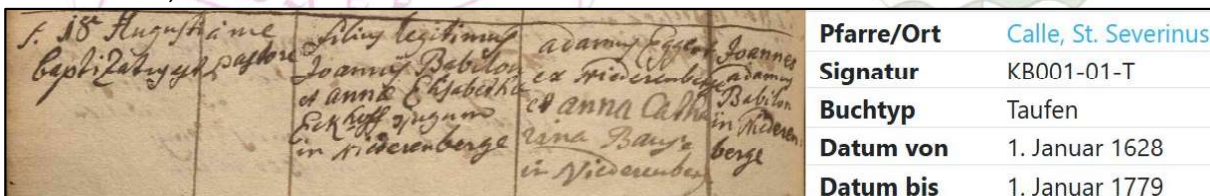 s. 18ª Augusti
baptizatus est
a me
pastore
filius legitimus
Joannis Babilon
et annæ Elisabetha
Eckhoff conjugum
in Niederenberge
adamus Eggert
ex Niederenberge
et anna Catha
rina Bause
in Niederenberg
Joannes
adamus
Babilon
in Niederen
berge
Pfarre/Ort Calle, St. Severinus
Signatur KB001-01-T
Buchtyp Taufen
Datum von 1. Januar 1628
Datum bis 1. Januar 1779